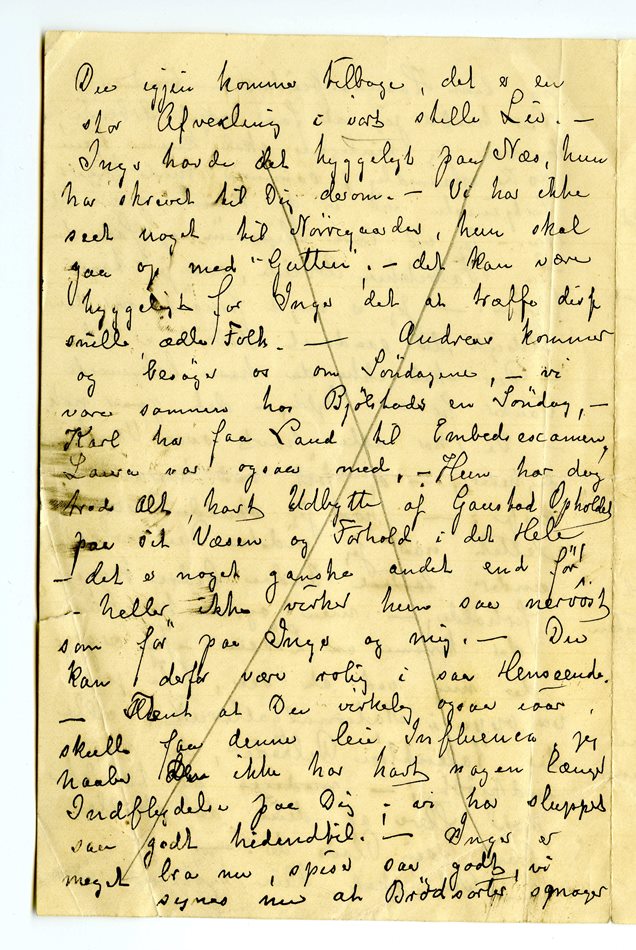 Du igjen kommer tilbage, det er en
stor Afvexling i vort stille Liv. —
Inga havde det hyggeligt paa Næs, hun
har skrevet til Dig derom. — Vi har ikke
seet noget til Nørregaards, hun skal
gaa op med "Gutten", — det kan være
hyggeligt for Inga det at træffe disse
snille, ædle Folk. — Andreas kommer
og besøger os om Söndagene, — vi
vare sammen hos Bjölstads en Söndag, —
Karl har faa Laud til Embedsexamen,
Laura var ogsaa med. — Hun har dog
trods Alt, havt Udbytte af Gaustad Opholdet
paa sit Væsen og Forhold i det Hele
— det er noget ganske andet end för!
— heller ikke virker hun saa nervöst
som för paa Inga og mig. — Du
kan derfor være rolig i saa Henseende.
— at Du virkelig ogsaa iaar,
skulle faa denne leie Influenca, jeg
haaber den ikke har havt nogen længer
Indflydelse paa Dig — vi har sluppet
saa godt hidendtil. — Inga er
meget bra nu, spiser saa godt, vi
synes nu at Brödsorter smager